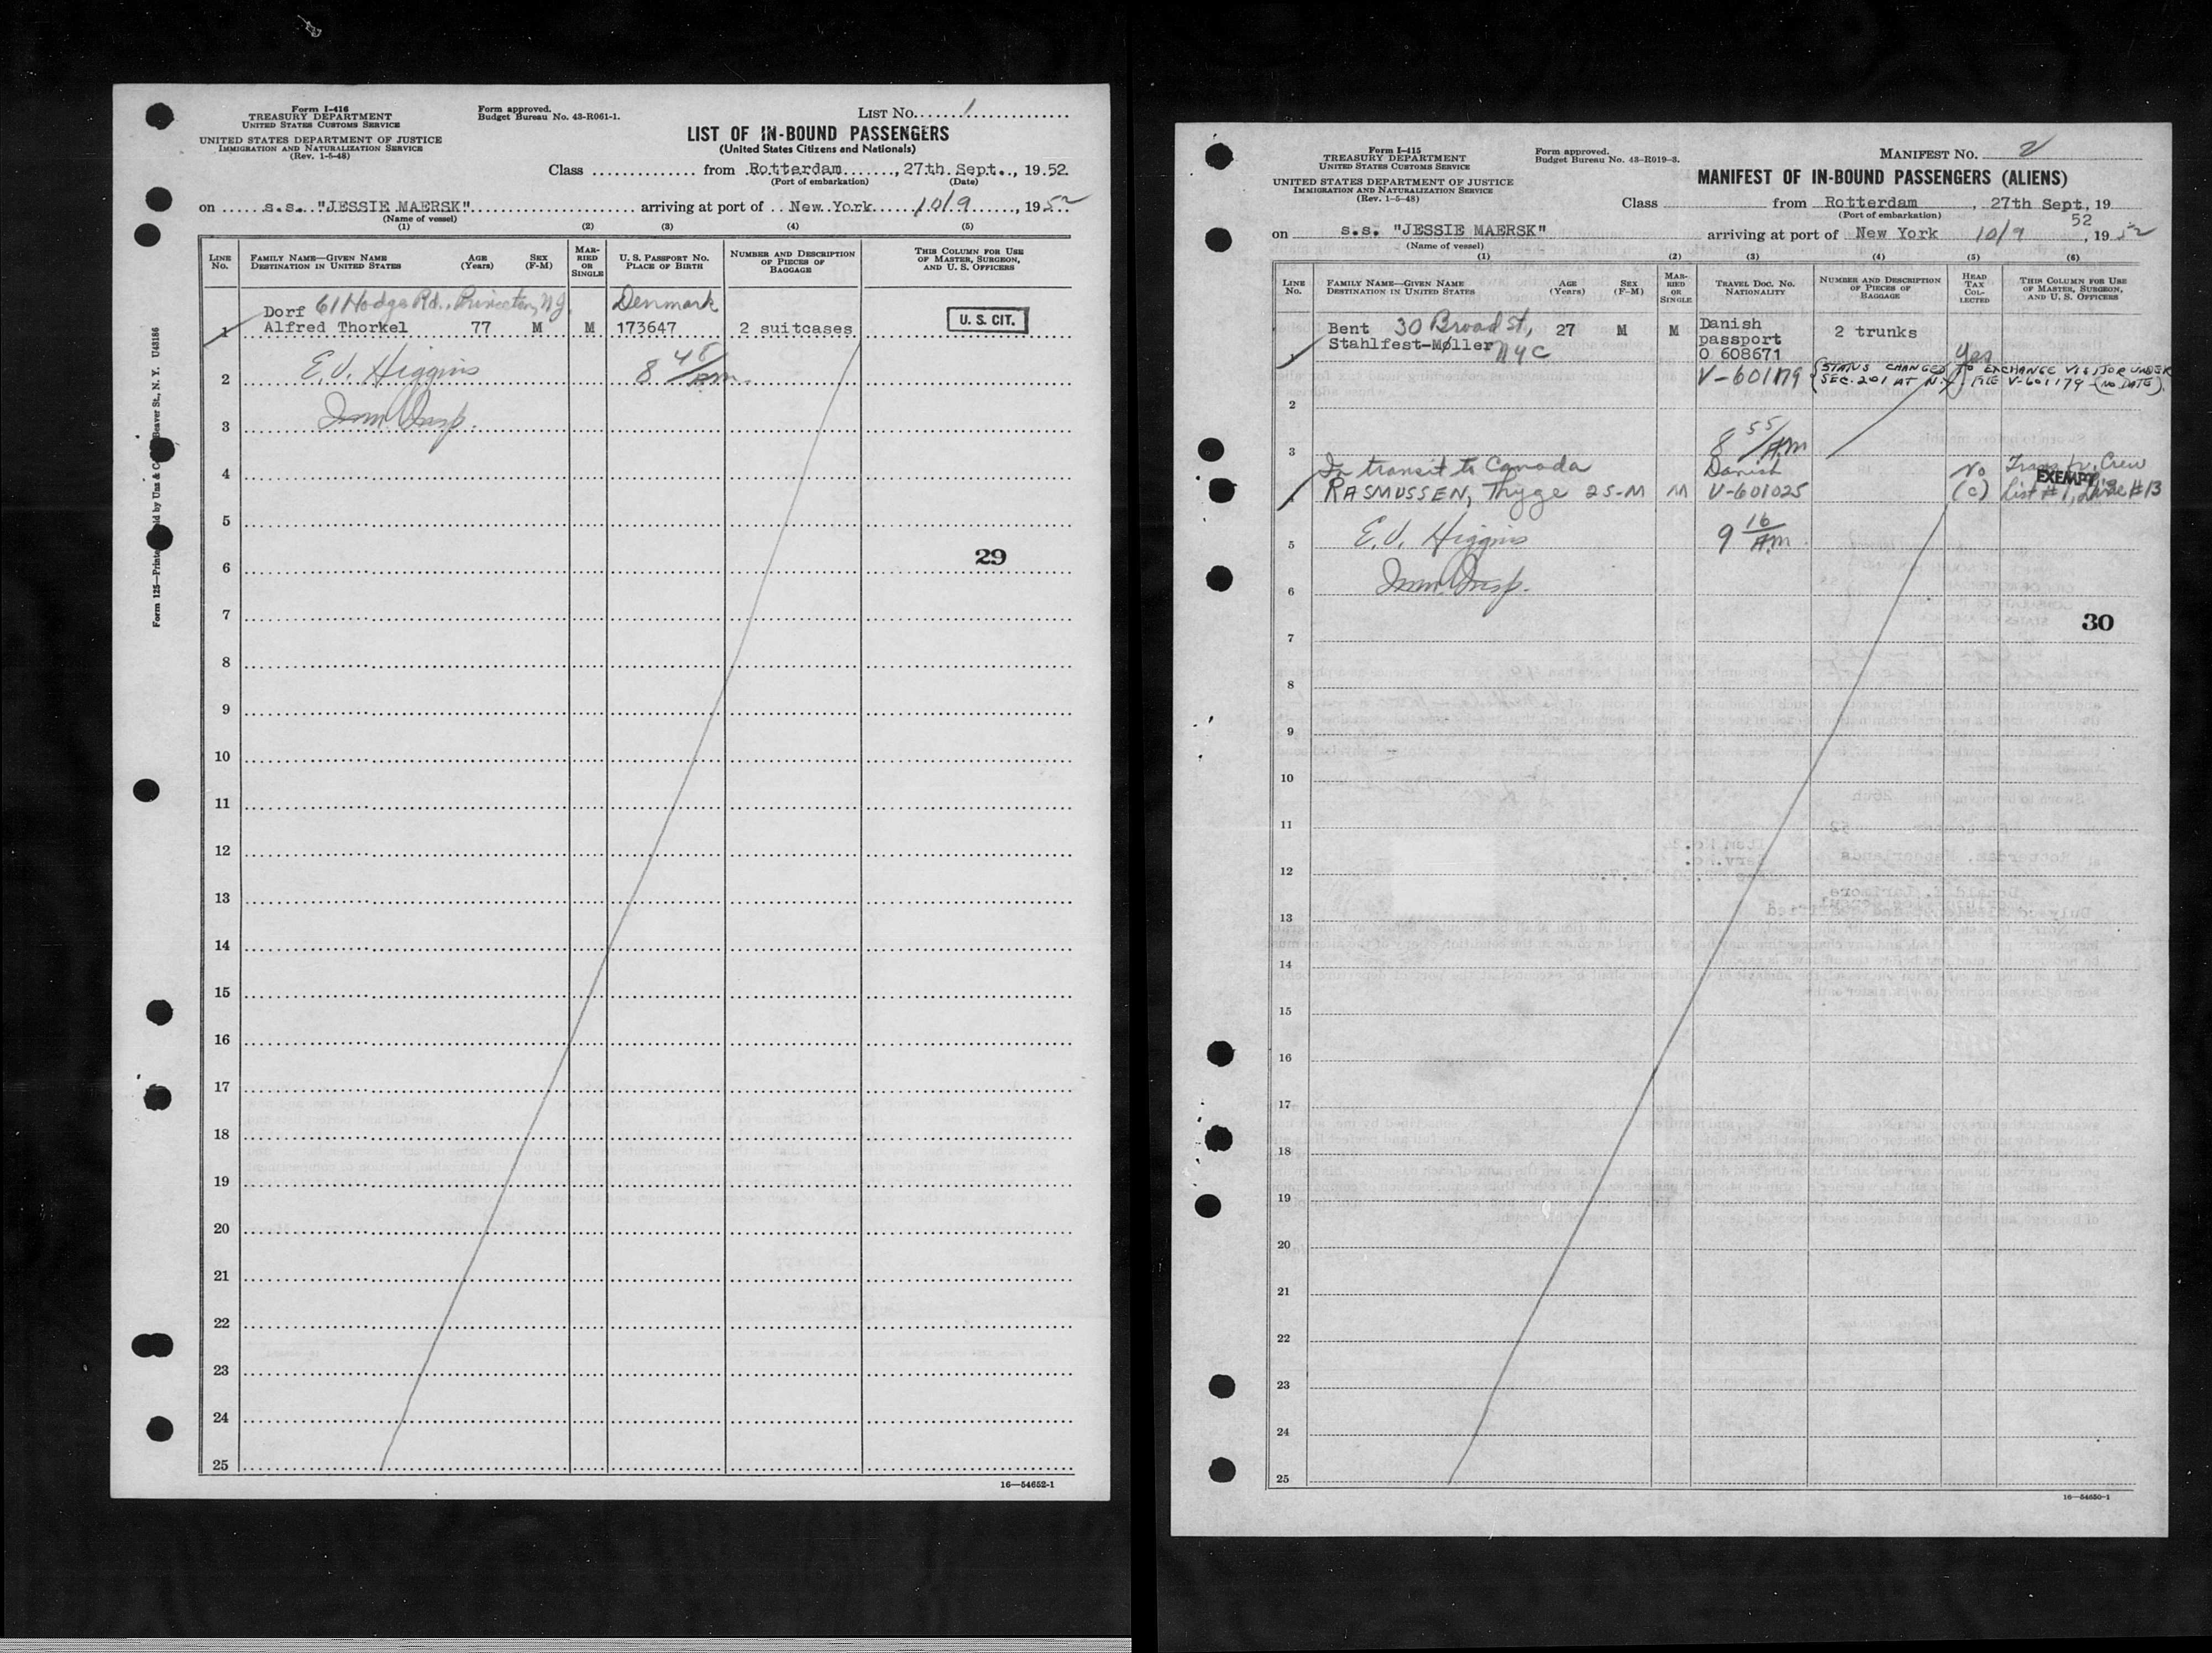 Form I-416
TREASURY DEPARTMENT
UNITED STATES CUSTOMS SERVICE
UNITED STATES DEPARTMENT OF JUSTICE
IMMIGRATION AND NATURALIZATION SERVICE
(Rev. 1-5-48)
Form approved.
Budget Bureau No. 43-R061-1.
LIST No. 1
LIST OF IN-BOUND PASSENGERS
(United States Citizens and Nationals)
Class from Rotterdam, 27th Sept., 1952
(Port of embarkation) (Date)
on s.s. "JESSIE MAERSK" arriving at port of New York 10/9, 1952
(Name of vessel)
(1) (2) (3) (4) (5)
LINE No. FAMILY NAME—GIVEN NAME DESTINATION IN UNITED STATES AGE (Years) SEX (F-M) MARRIED OR SINGLE U. S. PASSPORT NO. PLACE OF BIRTH NUMBER AND DESCRIPTION OF PIECES OF BAGGAGE THIS COLUMN FOR USE OF MASTER, SURGEON, AND U. S. OFFICERS
Dorf 61 Hodge Rd., Princeton, NJ. Denmark
1 Alfred Thorkel 77 M M 173647 2 suitcases U. S. CIT.
E.J. Higgins 8 45/AM.
2
Imm Insp.
3
4
5
29
6
7
8
9
10
11
12
13
14
15
16
17
18
19
20
21
22
23
24
25
16—54652-1
Form 125—Printed
Beaver St., N. Y. U43186
Form I-415
TREASURY DEPARTMENT
UNITED STATES CUSTOMS SERVICE
UNITED STATES DEPARTMENT OF JUSTICE
IMMIGRATION AND NATURALIZATION SERVICE
(Rev. 1-5-48)
Form approved.
Budget Bureau No. 43-R019-3.
MANIFEST No. 2
MANIFEST OF IN-BOUND PASSENGERS (ALIENS)
Class from Rotterdam, 27th Sept, 19
(Port of embarkation) 52
on s.s. "JESSIE MAERSK" arriving at port of New York 10/9, 1952
(Name of vessel)
(1) (2) (3) (4) (5) (6)
LINE No. FAMILY NAME—GIVEN NAME DESTINATION IN UNITED STATES AGE (Years) SEX (F-M) MARRIED OR SINGLE TRAVEL DOC. NO. NATIONALITY NUMBER AND DESCRIPTION OF PIECES OF BAGGAGE HEAD TAX COLLECTED THIS COLUMN FOR USE OF MASTER, SURGEON, AND U. S. OFFICERS
Bent 30 Broad St, 27 M M Danish 2 trunks
Stahlfest-Møller NYC passport
1 O 608671 Yes
V-601179 (STATUS CHANGED TO EXCHANGE VISITOR UNDER
SEC. 201 AT N.Y. FILE V-601179 (NO DATE).
2
8 55/AM
3
In transit to Canada Danish No Trans. fr. Crew
4 RASMUSSEN, Thyge 25-M M V-601025 (C) EXEMPT List #1, Line #13
E.J. Higgins 9 16/AM
5
Imm. Insp.
6
30
7
8
9
10
11
12
13
14
15
16
17
18
19
20
21
22
23
24
25
16—54650-1